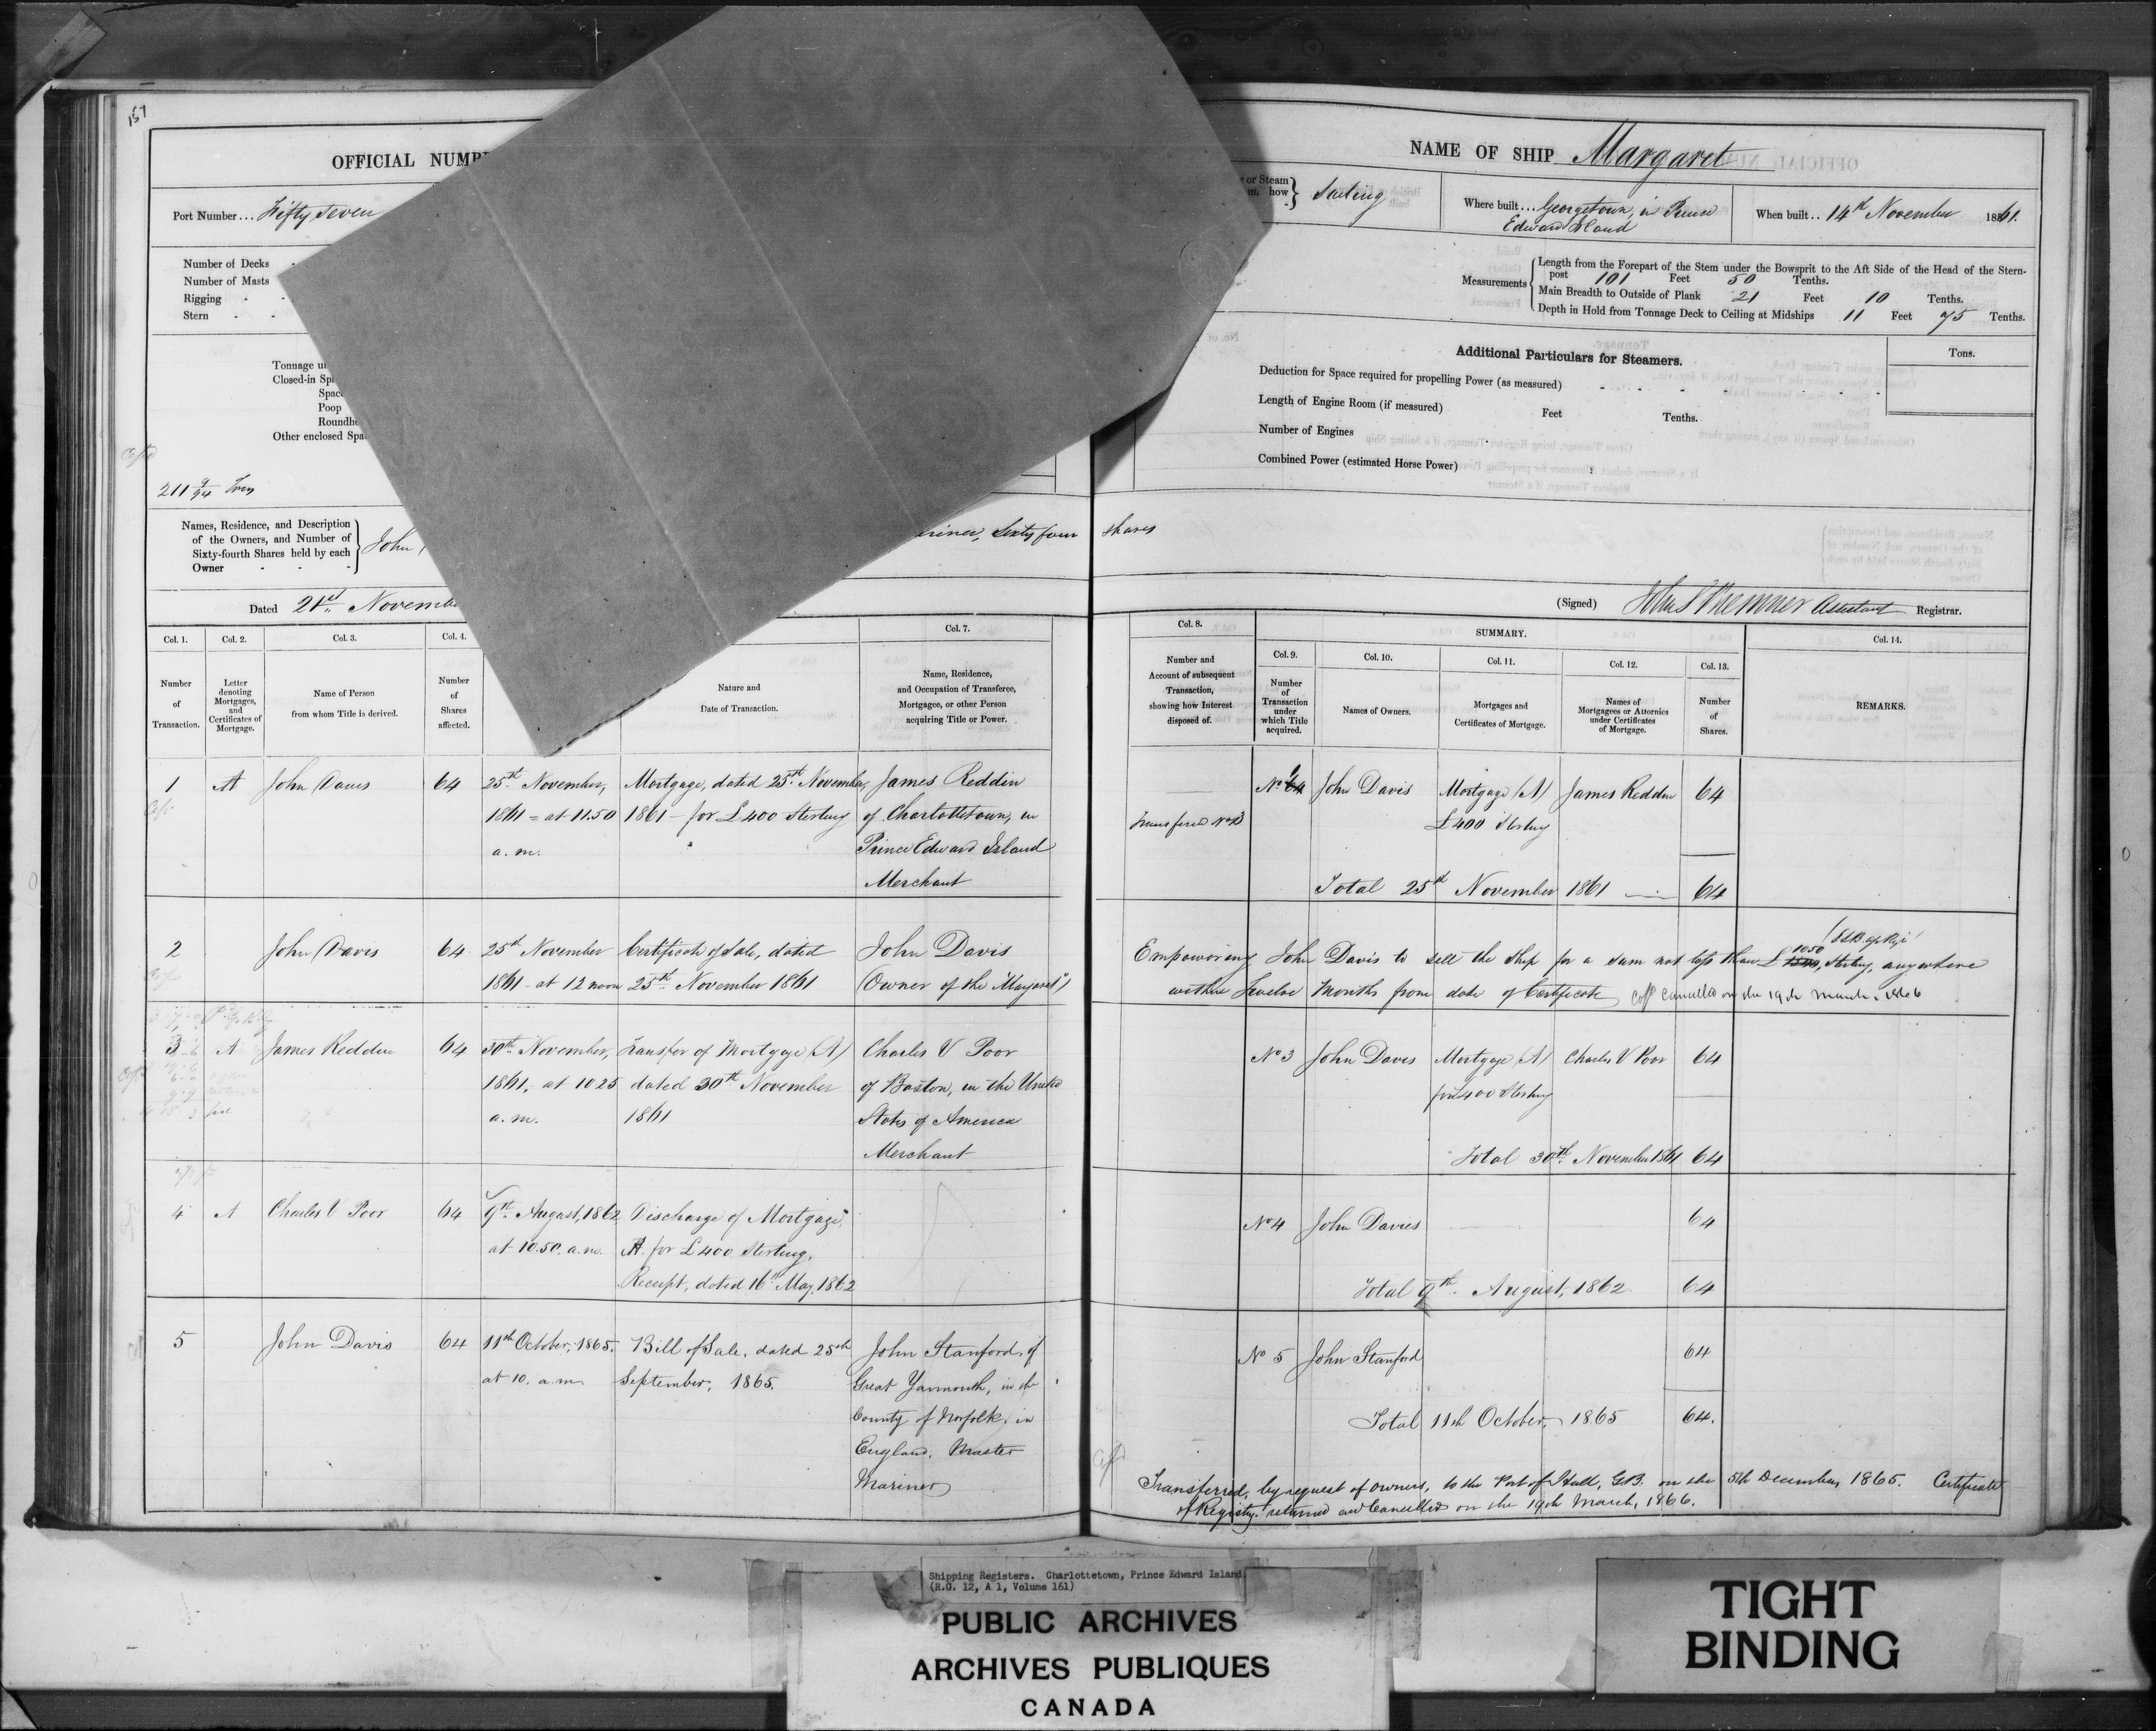 157
OFFICIAL NUMB
Port Number... Fifty Seven
Number of Decks
Number of Masts
Rigging
Stern
Tonnage u
Closed-in Sp
Space
Poop
Roundho
Other enclosed Spa
211 9/94 Tons
Names, Residence, and Description
of the Owners, and Number of
Sixty-fourth Shares held by each
Owner
John
ariner, Sixty four shares
Dated 21st Novembe
NAME OF SHIP Margaret
or Steam
how
Sailing
Where built... Georgetown, in Prince
Edward Island
When built.. 14th November 1861.
Measurements
Length from the Forepart of the Stem under the Bowsprit to the Aft Side of the Head of the Stern-
post 101 Feet 50 Tenths.
Main Breadth to Outside of Plank 21 Feet 10 Tenths.
Depth in Hold from Tonnage Deck to Ceiling at Midships 11 Feet 75 Tenths.
Additional Particulars for Steamers.
Tons.
Deduction for Space required for propelling Power (as measured)
Length of Engine Room (if measured) Feet Tenths.
Number of Engines
Combined Power (estimated Horse Power)
(Signed) Assistant Registrar.
Col. 1. Col. 2. Col. 3. Col. 4. Col. 7.
Number of Transaction.
Letter denoting Mortgages, and Certificates of Mortgage.
Name of Person from whom Title is derived.
Number of Shares affected.
Nature and Date of Transaction.
Name, Residence, and Occupation of Transferee, Mortgagee, or other Person acquiring Title or Power.
Col. 8. SUMMARY. Col. 14.
Col. 9. Col. 10. Col. 11. Col. 12. Col. 13.
Number and Account of subsequent Transaction, showing how Interest disposed of.
Number of Transaction under which Title acquired.
Names of Owners.
Mortgages and Certificates of Mortgage.
Names of Mortgagees or Attornies under Certificates of Mortgage.
Number of Shares.
REMARKS.
1 A John Davis 64 25th November, Mortgage, dated 25th November, James Reddin
1861 = at 11.50 1861 - for £400 Sterling of Charlottetown, in
a.m. Prince Edward Island
Merchant
John Davis Mortgage (A) James Reddin 64
Transferred No 3 £400 Sterling
Total 25th November 1861 64
2 John Davis 64 25th November Certificate of Sale, dated John Davis
1861 - at 12 noon 25th November 1861 (Owner of the "Margaret")
Empowering John Davis to sell the Ship for a sum not less than £ 1050 Sterling, anywhere
within Twelve Months from date of Certificate Cancelled on the 19th March 1866
3 A James Reddin 64 30th November, Transfer of Mortgage (A) Charles V Poor
1861, at 10 25 dated 30th November of Boston, in the United
a.m. 1861 States of America
Merchant
No 3 John Davis Mortgage (A) Charles V Poor 64
for £400 Sterling
Total 30th November 1861 64
4 A Charles V Poor 64 9th August, 1862 Discharge of Mortgage
at 10.50. a.m. A. for £400 Sterling.
Receipt, dated 16th May, 1862
No 4 John Davies 64
Total 9th August, 1862 64
5 John Davis 64 11th October, 1865. Bill of Sale, dated 25th John Stanford, of
at 10. a.m. September, 1865. Great Yarmouth, in the
County of Norfolk, in
England, Master
Mariner
No 5 John Stanford 64
Total 11th October, 1865 64.
Transferred, by request of owners, to the Port of Hull, G.B. on the 5th December, 1865. Certificate
of Registry returned and Cancelled on the 19th March, 1866.
Shipping Registers. Charlottetown, Prince Edward Island.
(R.G. 12, A 1, Volume 161)
PUBLIC ARCHIVES
ARCHIVES PUBLIQUES
CANADA
TIGHT
BINDING